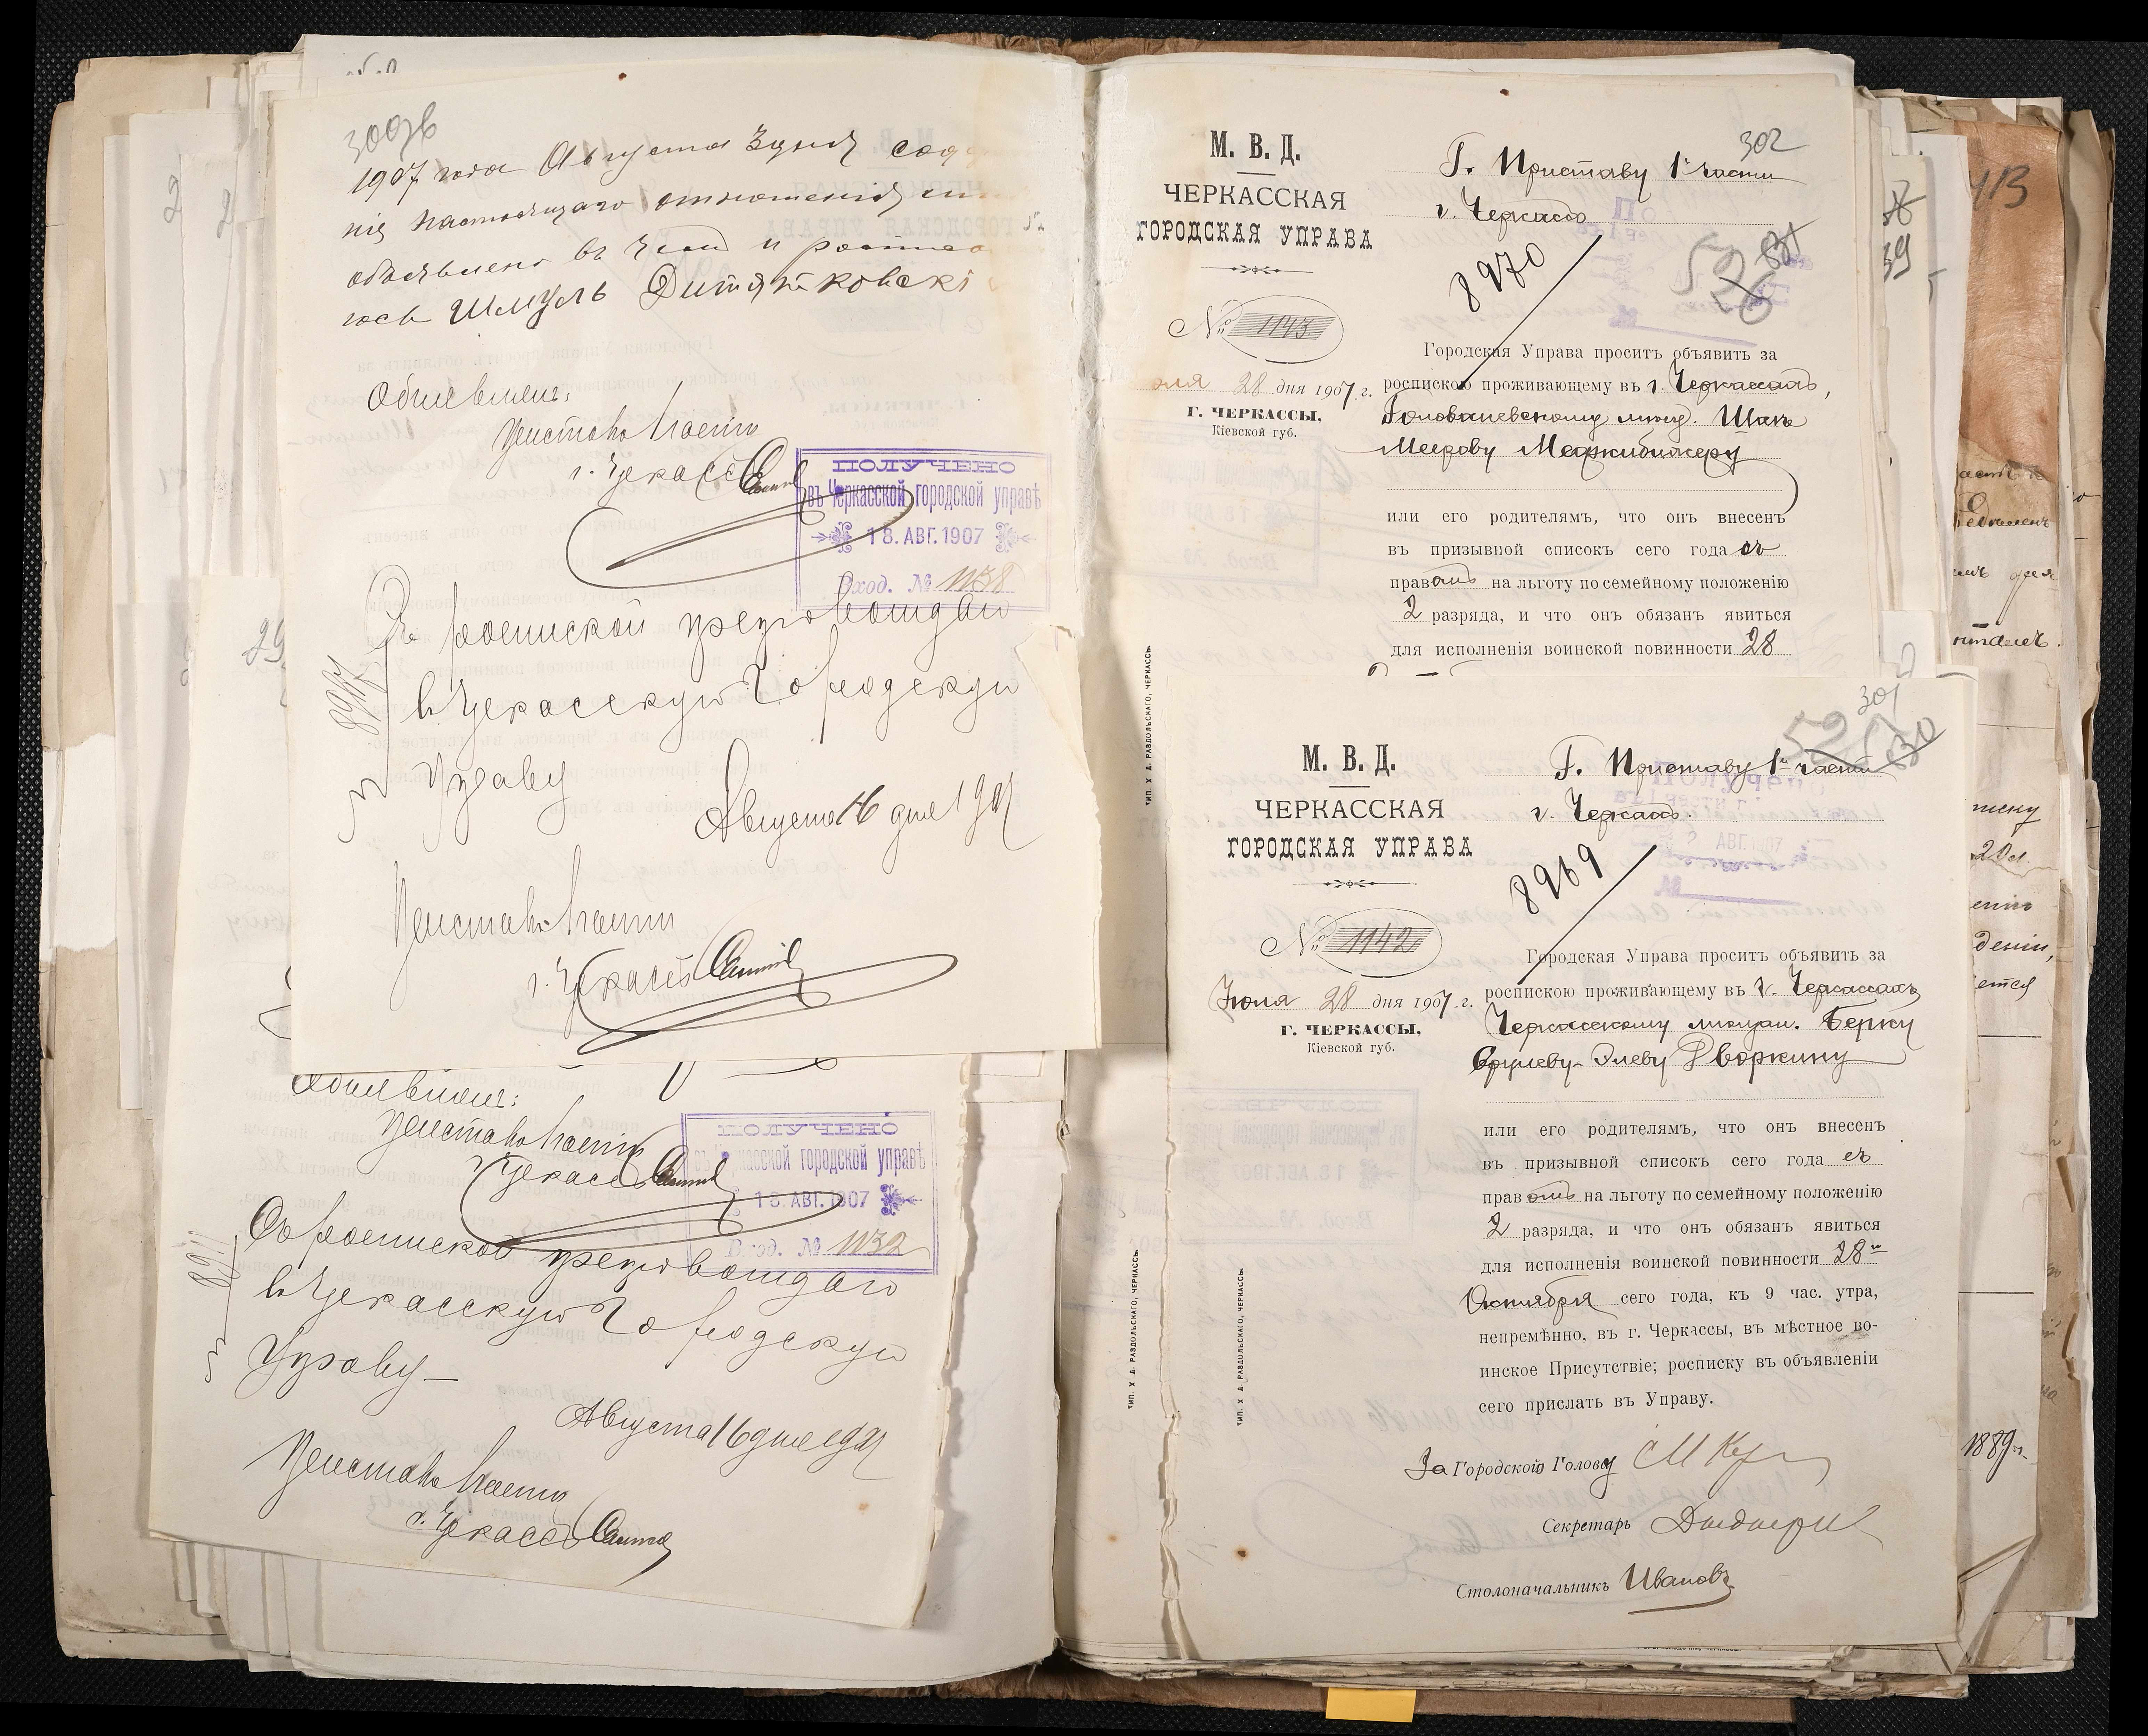 300об
1907 года Августа 3 дня сод
нія настоящаго отношенія мн
объявлено въ чемъ и роспис
юсь Шмуль Дитятковскі
Объявилъ:
Приставъ 1 части
г. Черкассъ
ПОЛУЧЕНО
въ Черкасской городской управѣ
18. АВГ. 1907
Вход. № 1138
Съ роспиской препровождаю
въ Черкасскую Городскую
Управу
Августа 16 дня 1907
Приставъ 1 части
г. Черкассъ
Объявилъ:
Приставъ 1 части
г. Черкассъ
ПОЛУЧЕНО
въ Черкасской городской управѣ
18. АВГ. 1907
Вход. № 1132
Съ роспиской препровождаю
въ Черкасскую Городскую
Управу
Августа 16 дня 1907
Приставъ 1 части
г. Черкассъ
302
М. В. Д.
ЧЕРКАССКАЯ
ГОРОДСКАЯ УПРАВА
№ 1143
юля 28 дня 1907 г.
Г. ЧЕРКАССЫ,
Кіевской губ.
Г. Приставу 1й части
г. Черкассъ
8970
Городская Управа проситъ объявить за
роспискою проживающему въ г. Черкассахъ,
мѣщ.
Меерову
или его родителямъ, что онъ внесенъ
въ призывной списокъ сего года съ
правомъ на льготу по семейному положенію
2 разряда, и что онъ обязанъ явиться
для исполненія воинской повинности 28
ТИП. Х. Д. РАЗДОЛЬСКАГО, ЧЕРКАССЫ
301
М. В. Д.
ЧЕРКАССКАЯ
ГОРОДСКАЯ УПРАВА
№ 1142
Іюля 28 дня 1907 г.
Г. ЧЕРКАССЫ,
Кіевской губ.
Г. Приставу 1й части
г. Черкассъ.
8969
Городская Управа проситъ объявить за
роспискою проживающему въ г. Черкассахъ
Черкасскому мѣщан. Берку
Срулеву-Элеву Дворкину
или его родителямъ, что онъ внесенъ
въ призывной списокъ сего года съ
правомъ на льготу по семейному положенію
2 разряда, и что онъ обязанъ явиться
для исполненія воинской повинности 28го
Октября сего года, къ 9 час. утра,
непремѣнно, въ г. Черкассы, въ мѣстное во-
инское Присутствіе; росписку въ объявленіи
сего прислать въ Управу.
За Городского Голову
Секретарь
Столоначальникъ Ивановъ
ТИП. Х. Д. РАЗДОЛЬСКАГО, ЧЕРКАССЫ
ТИП. Х. Д. РАЗДОЛЬСКАГО, ЧЕРКАССЫ
1889 г.